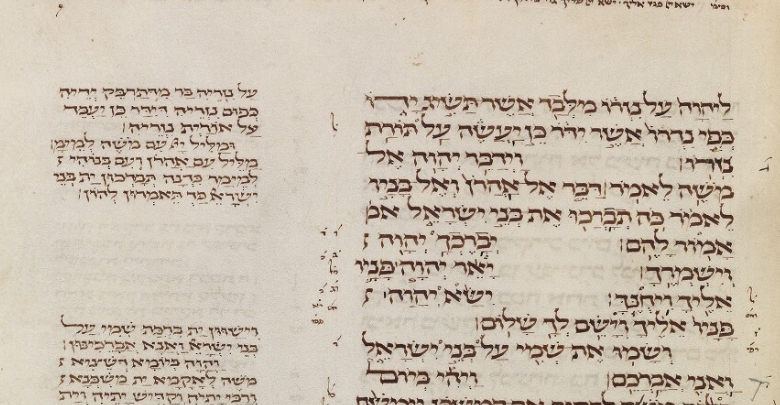 ליהוה על נזרו מלבד אשר תשיג ידו
כפי נדרו אשר ידר כן יעשה על תורת
נזרו׃ וידבר יהוה אל
משה לאמר׃ דבר אל אהרן ואל בניו
לאמר כה תברכו את בני ישראל אמ
אמור להם׃ יברכך יהוה
וישמרך׃ יאר יהוה פניו
אליך ויחנך׃ ישא יהוה
פניו אליך וישם לך שלום׃
ושמו את שמי על בני ישראל
ואני אברכם׃ ויהי ביום
על נזריה בר מדתדבק ידיה
כפום נדריה דידר כן יעבד
על אורית נזריה׃
ומליל עם משה למימר׃
מליל עם אהרן ועם בנוהי
למימר כדנה תברכון ית בני
ישרא כד תאמרון להון׃
וישוון ית ברכת שמי על
בני ישרא ואנא אברכינון׃
והוה ביומא דשיציא
משה לאקמא ית משכנא
ורבי יתיה וקדיש יתיה וית